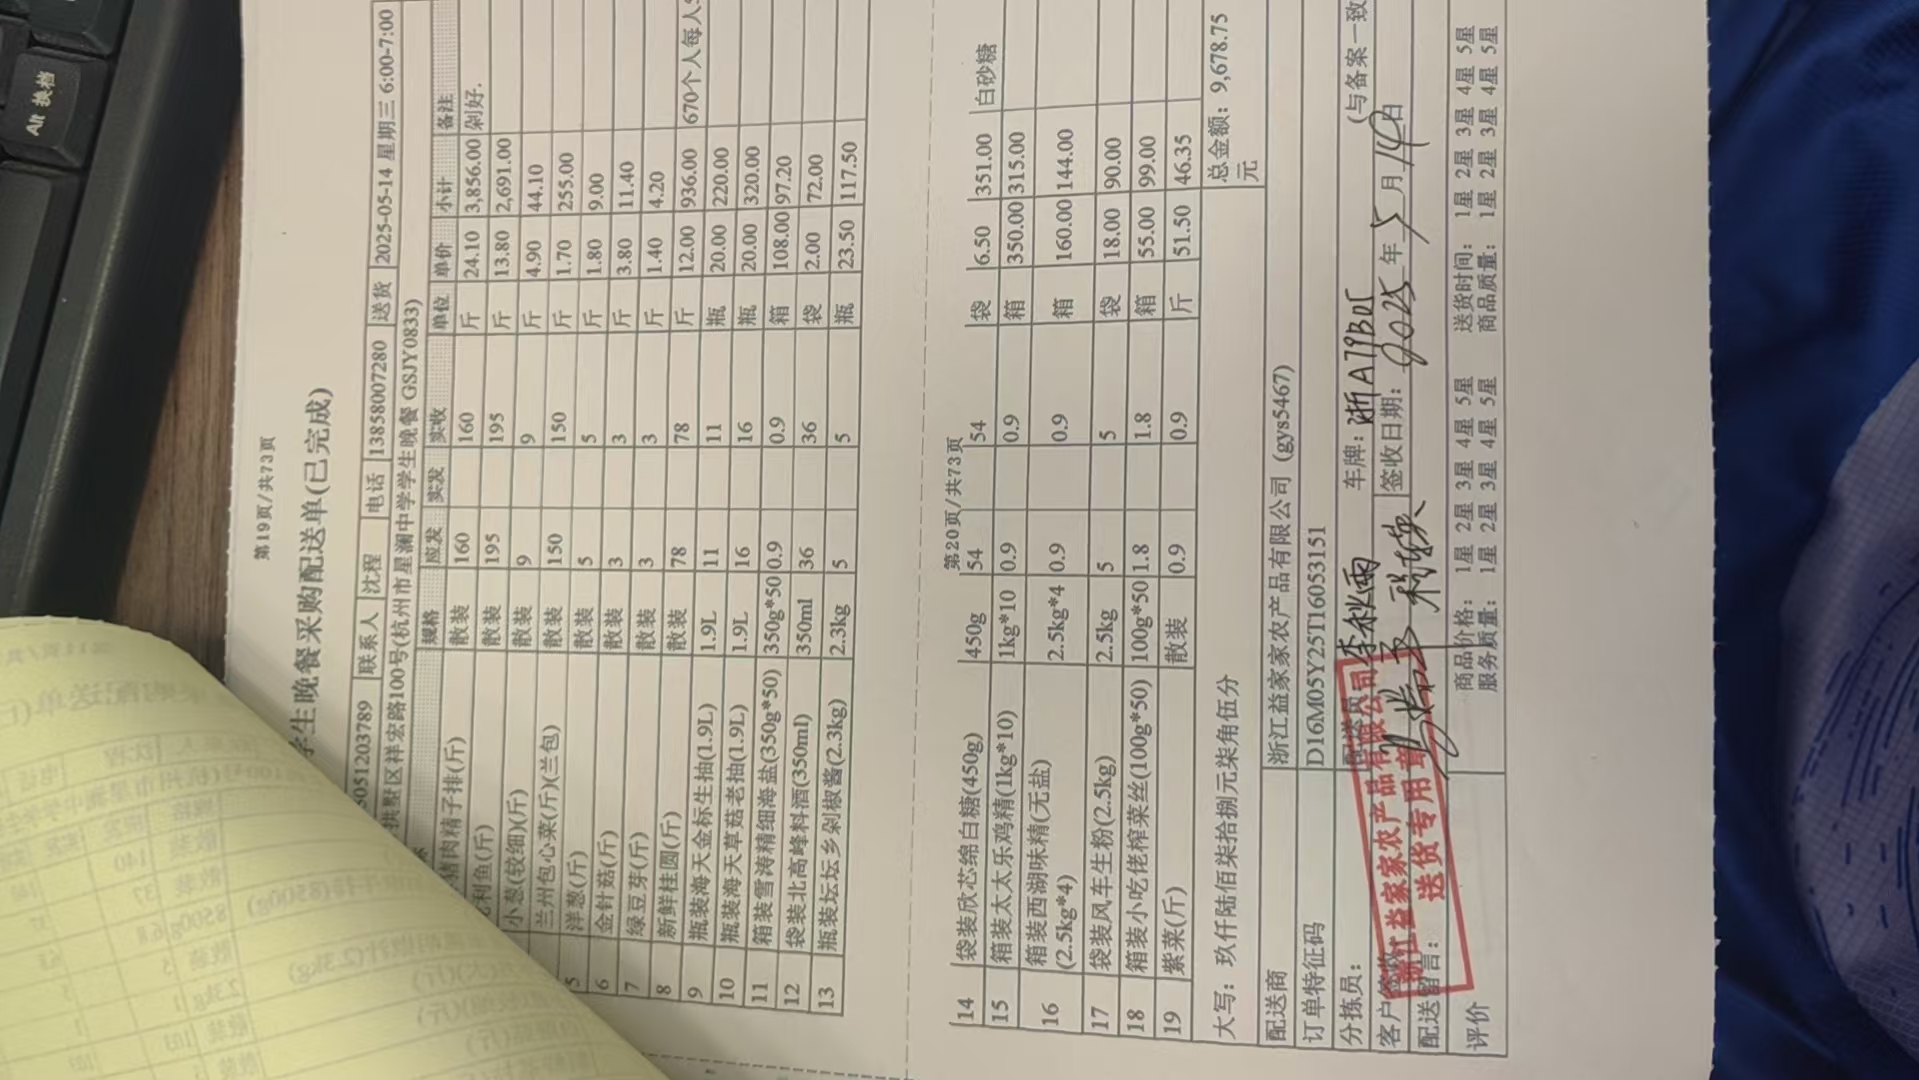 Alt 换档
第19页/共73页
学生晚餐采购配送单(已完成)
5051203789 联系人 沈程 电话 13858007280 送货 2025-05-14 星期三 6:00-7:00
拱墅区祥宏路100号(杭州市星澜中学学生晚餐 GSJY0833)
规格 应发 实发 实收 单位 单价 小计 备注
猪肉精子排(斤) 散装 160 160 斤 24.10 3,856.00 剁好.
利鱼(斤) 散装 195 195 斤 13.80 2,691.00
小葱(较细)(斤) 散装 9 9 斤 4.90 44.10
兰州包心菜(斤)(兰包) 散装 150 150 斤 1.70 255.00
5 洋葱(斤) 散装 5 5 斤 1.80 9.00
6 金针菇(斤) 散装 3 3 斤 3.80 11.40
7 绿豆芽(斤) 散装 3 3 斤 1.40 4.20
8 新鲜桂圆(斤) 散装 78 78 斤 12.00 936.00 670个人每人
9 瓶装海天金标生抽(1.9L) 1.9L 11 11 瓶 20.00 220.00
10 瓶装海天草菇老抽(1.9L) 1.9L 16 16 瓶 20.00 320.00
11 箱装雪涛精细海盐(350g*50) 350g*50 0.9 0.9 箱 108.00 97.20
12 袋装北高峰料酒(350ml) 350ml 36 36 袋 2.00 72.00
13 瓶装坛坛乡剁椒酱(2.3kg) 2.3kg 5 5 瓶 23.50 117.50
第20页/共73页
14 袋装欣芯绵白糖(450g) 450g 54 54 袋 6.50 351.00 白砂糖
15 箱装太太乐鸡精(1kg*10) 1kg*10 0.9 0.9 箱 350.00 315.00
16 箱装西湖味精(无盐)(2.5kg*4) 2.5kg*4 0.9 0.9 箱 160.00 144.00
17 袋装风车生粉(2.5kg) 2.5kg 5 5 袋 18.00 90.00
18 箱装小吃佬榨菜丝(100g*50) 100g*50 1.8 1.8 箱 55.00 99.00
19 紫菜(斤) 散装 0.9 0.9 斤 51.50 46.35
大写: 玖仟陆佰柒拾捌元柒角伍分 总金额: 9,678.75元
配送商 浙江益家家农产品有限公司 (gys5467)
订单特征码 D16M05Y25T116053151
分拣员: 配送员 李秋雨 车牌: 浙A79B05 (与备案一致
客户签收 签收日期: 2025 年 5 月 14 日
配送留言:
浙江益家家农产品有限公司
送货专用章
评价 商品价格: 1星 2星 3星 4星 5星 送货时间: 1星 2星 3星 4星 5星
服务质量: 1星 2星 3星 4星 5星 商品质量: 1星 2星 3星 4星 5星